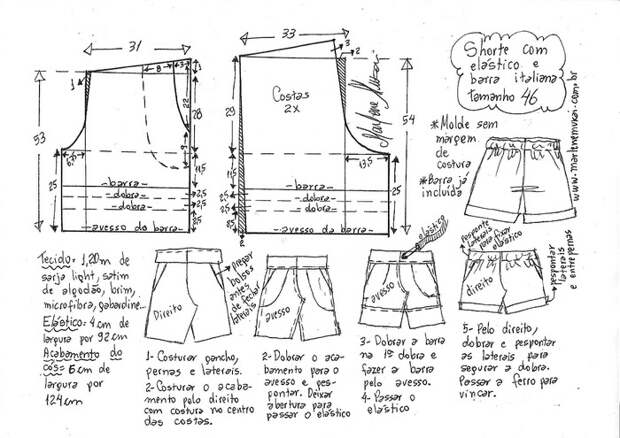 31
33
Shorte com
elástico e
barra italiana
tamanho 46
www.marlenemukai.com.br
Marlene Mukai
Costas
2X
53
28
29
54
22
8
11,5
11,5
13,5
25
25
25
2,5
2,5
2
3
2
1
* Molde sem
margem
de
costura
* Barra já
incluída
-barra-
-dobra-
-dobra-
-avesso da barra-
-barra-
-dobra-
-dobra-
-avesso da barra-
Tecido= 1,20m de
sarja light, satim
de algodão, brim,
microfibra, gabardine...
Elástico= 4cm de
largura por 92cm
Acabamento do
cós= 6cm de
largura por
124cm
Direito
prepar
bolsos
antes
de fechar
laterais
avesso
elástico
avesso
Pesponte
laterais
para fixar
elástico
direito
pespontar
laterais
e entrepernas
1- Costurar gancho,
pernas e laterais.
2- Costurar o acaba-
mento pelo direito
com costura no centro
das costas.
2- Dobrar o aca-
bamento para o
avesso e pes-
pontar. Deixar
abertura para
passar o elástico
3- Dobrar a barra
na 1ª dobra e
fazer a barra
pelo avesso.
4- Passar o
elástico
5- Pelo direito,
dobrar e pespontar
as laterais para
segurar a dobra.
Passar a ferro para
vincar.